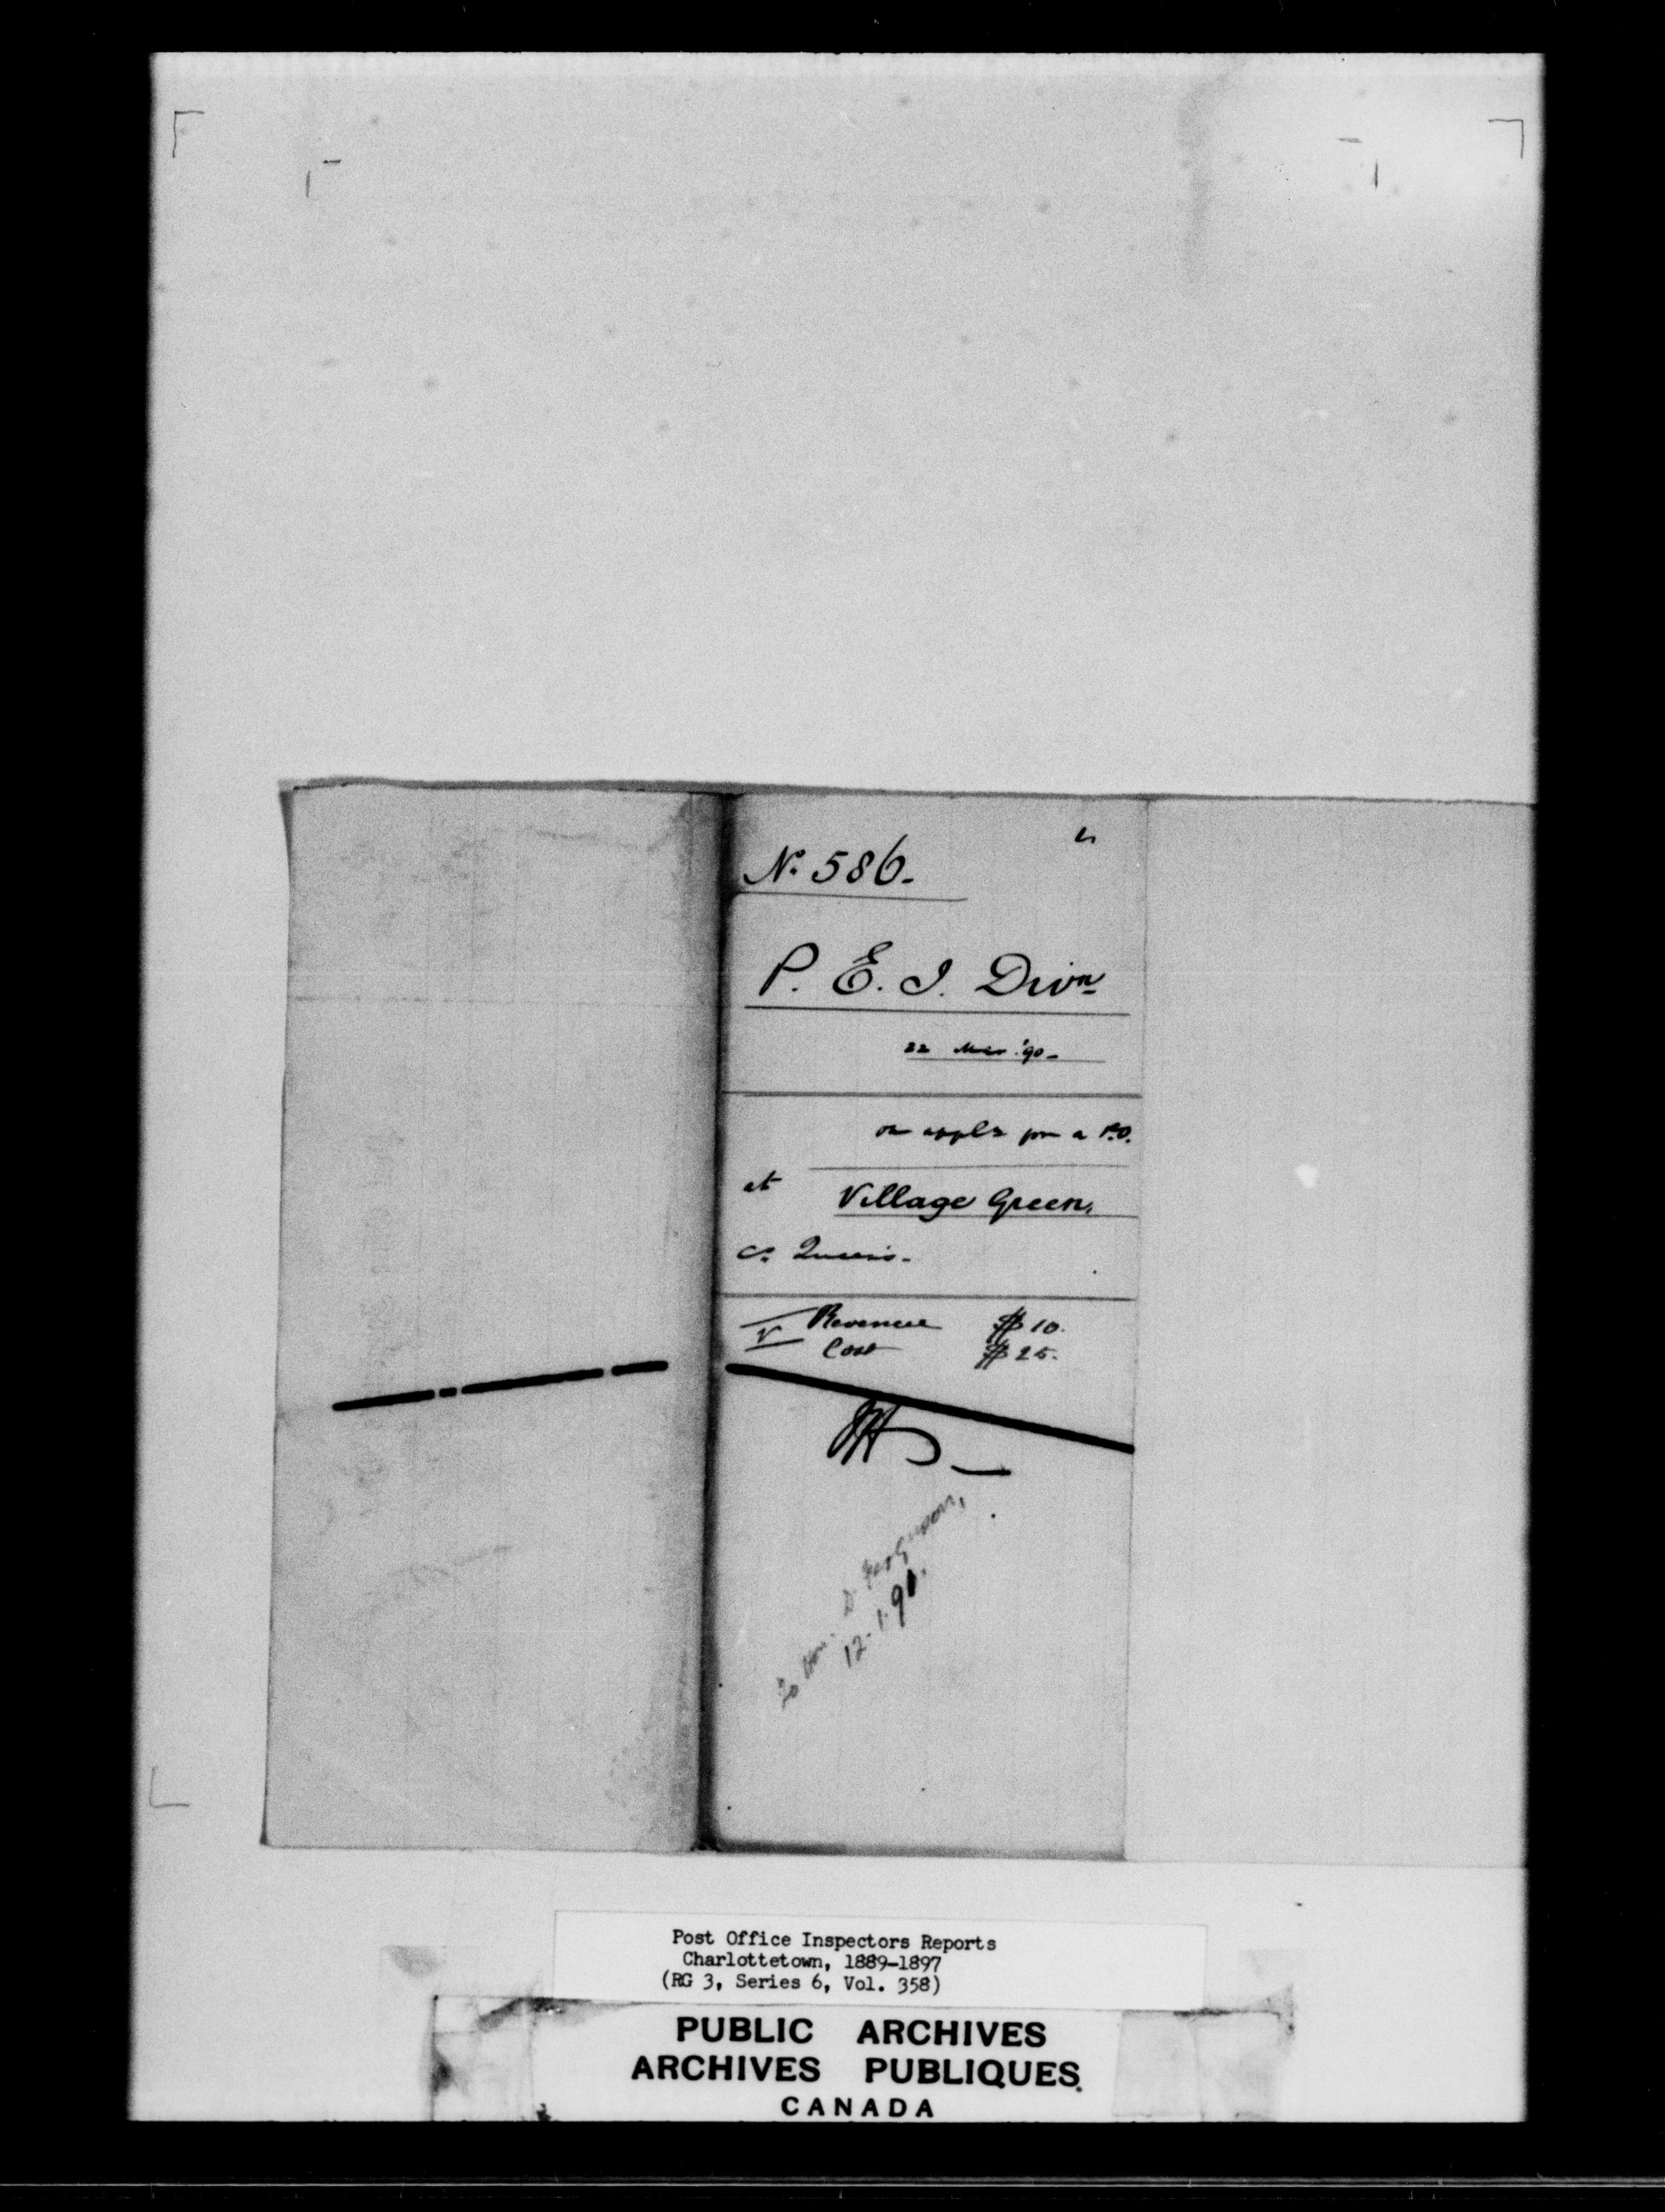 No. 586.
P. E. I. Divn
22 Mar '90
on appln for a P.O.
at Village Green,
Co. Queen's.
Revenue $10.
Cost $25.
To Hon. D. Ferguson,
12.1.91.
Post Office Inspectors Reports
Charlottetown, 1889-1897
(RG 3, Series 6, Vol. 358)
PUBLIC ARCHIVES
ARCHIVES PUBLIQUES
CANADA